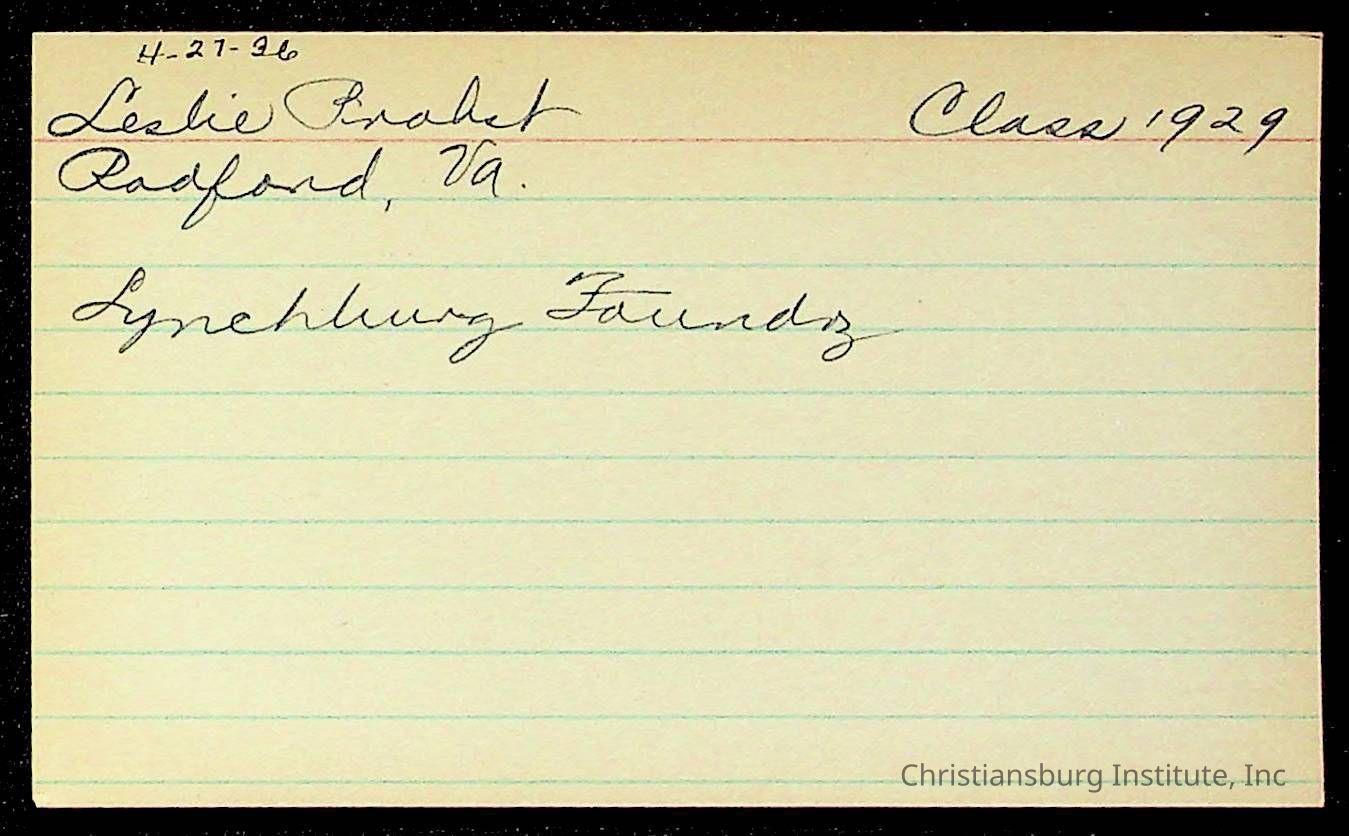 4-27-36
Leslie Probst Class 1929
Radford, Va.
Lynchburg Foundry
Christiansburg Institute, Inc